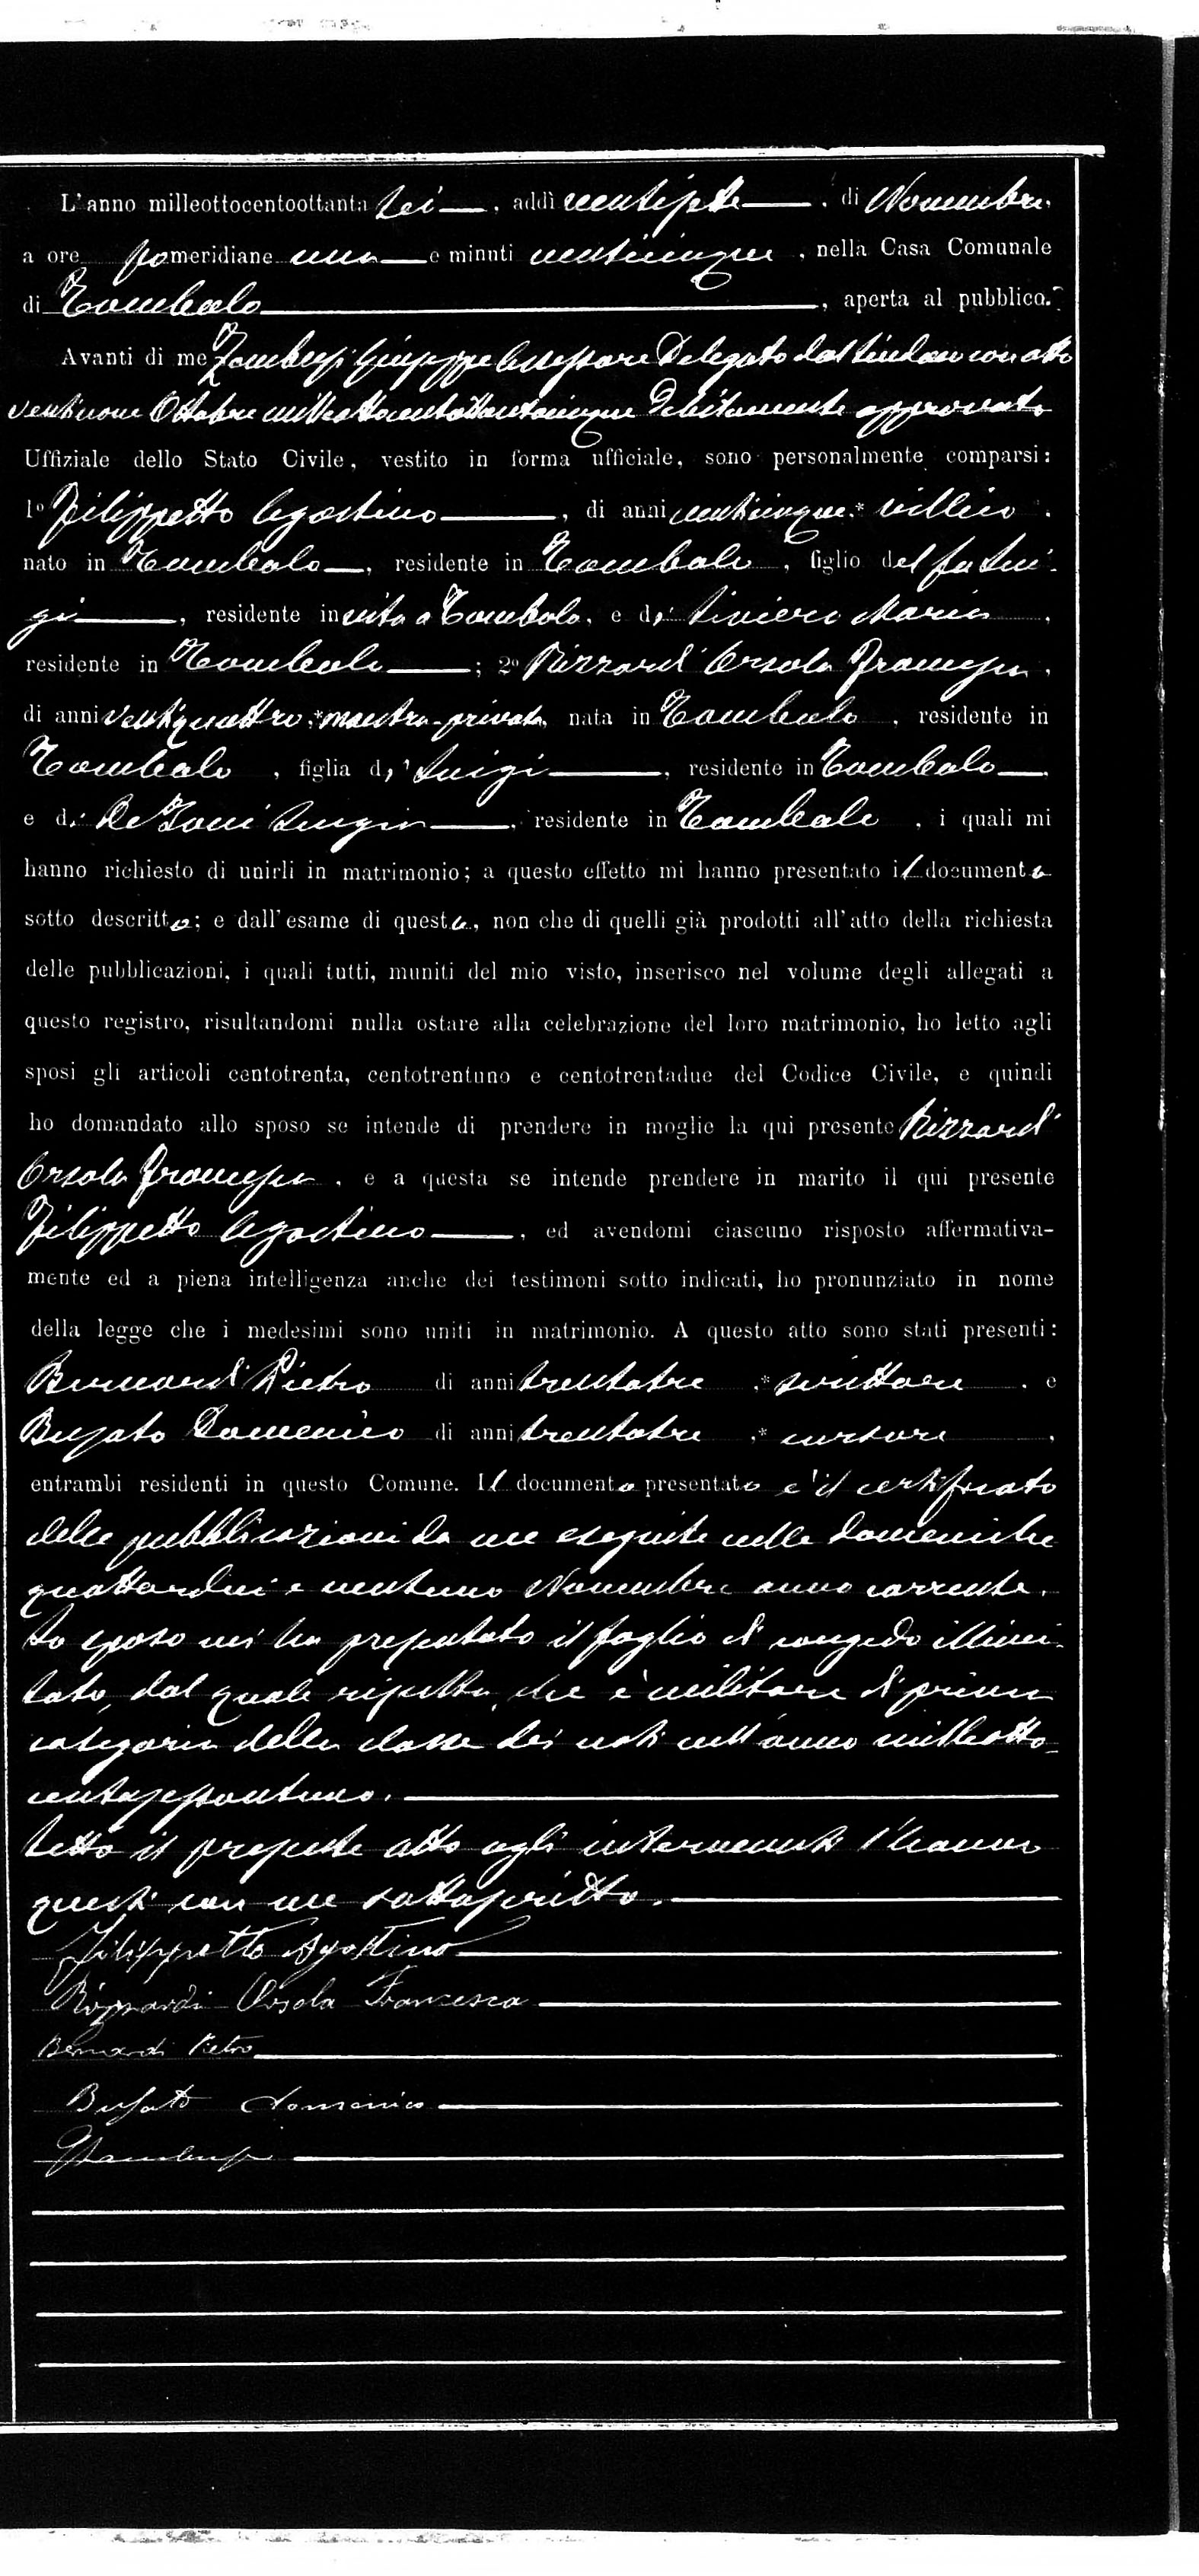 L'anno milleottocentoottanta sei, addì ventisette, di Novembre,
a ore pomeridiane una e minuti venticinque, nella Casa Comunale
di Tombolo, aperta al pubblico.
Avanti di me Zambusi Giuseppe Assessore Delegato dal Sindaco con atto
ventinove Ottobre milleottocentottantacinque Debitamente approvato
Uffiziale dello Stato Civile, vestito in forma ufficiale, sono personalmente comparsi:
1º Filippetto Agostino, di anni venticinque,* villico,
nato in Tombolo, residente in Tombolo, figlio del fu Lui-
gi, residente in vita a Tombolo, e di Livieri Maria,
residente in Tombolo; 2º Rizzardi Orsola Francesca,
di anni ventiquattro,* maestra privata, nata in Tombolo, residente in
Tombolo, figlia di Luigi, residente in Tombolo,
e di De Zoni Luigia, residente in Tombolo, i quali mi
hanno richiesto di unirli in matrimonio; a questo effetto mi hanno presentato il documento
sotto descritto; e dall'esame di questo, non che di quelli già prodotti all'atto della richiesta
delle pubblicazioni, i quali tutti, muniti del mio visto, inserisco nel volume degli allegati a
questo registro, risultandomi nulla ostare alla celebrazione del loro matrimonio, ho letto agli
sposi gli articoli centotrenta, centotrentuno e centotrentadue del Codice Civile, e quindi
ho domandato allo sposo se intende di prendere in moglie la qui presente Rizzardi
Orsola Francesca, e a questa se intende prendere in marito il qui presente
Filippetto Agostino, ed avendomi ciascuno risposto affermativa-
mente ed a piena intelligenza anche dei testimoni sotto indicati, ho pronunziato in nome
della legge che i medesimi sono uniti in matrimonio. A questo atto sono stati presenti:
Bernardi Pietro di anni trentatre,* scrittore, e
Busato Domenico di anni trentatre,* cursore,
entrambi residenti in questo Comune. Il documento presentato è il certificato
delle pubblicazioni da me eseguite nelle domeniche
quattordici e ventuno Novembre anno corrente.
Lo sposo mi ha presentato il foglio di congedo illimi-
tato, dal quale risulta, che è militare di prima
categoria della classe dei nati nell'anno milleotto-
centosessantuno.
Letto il presente atto agli intervenuti l'hanno
questi con me sottoscritto.
Filippetto Agostino
Rizzardi Orsola Francesca
Bernardi Pietro
Busato Domenico
GZambusi